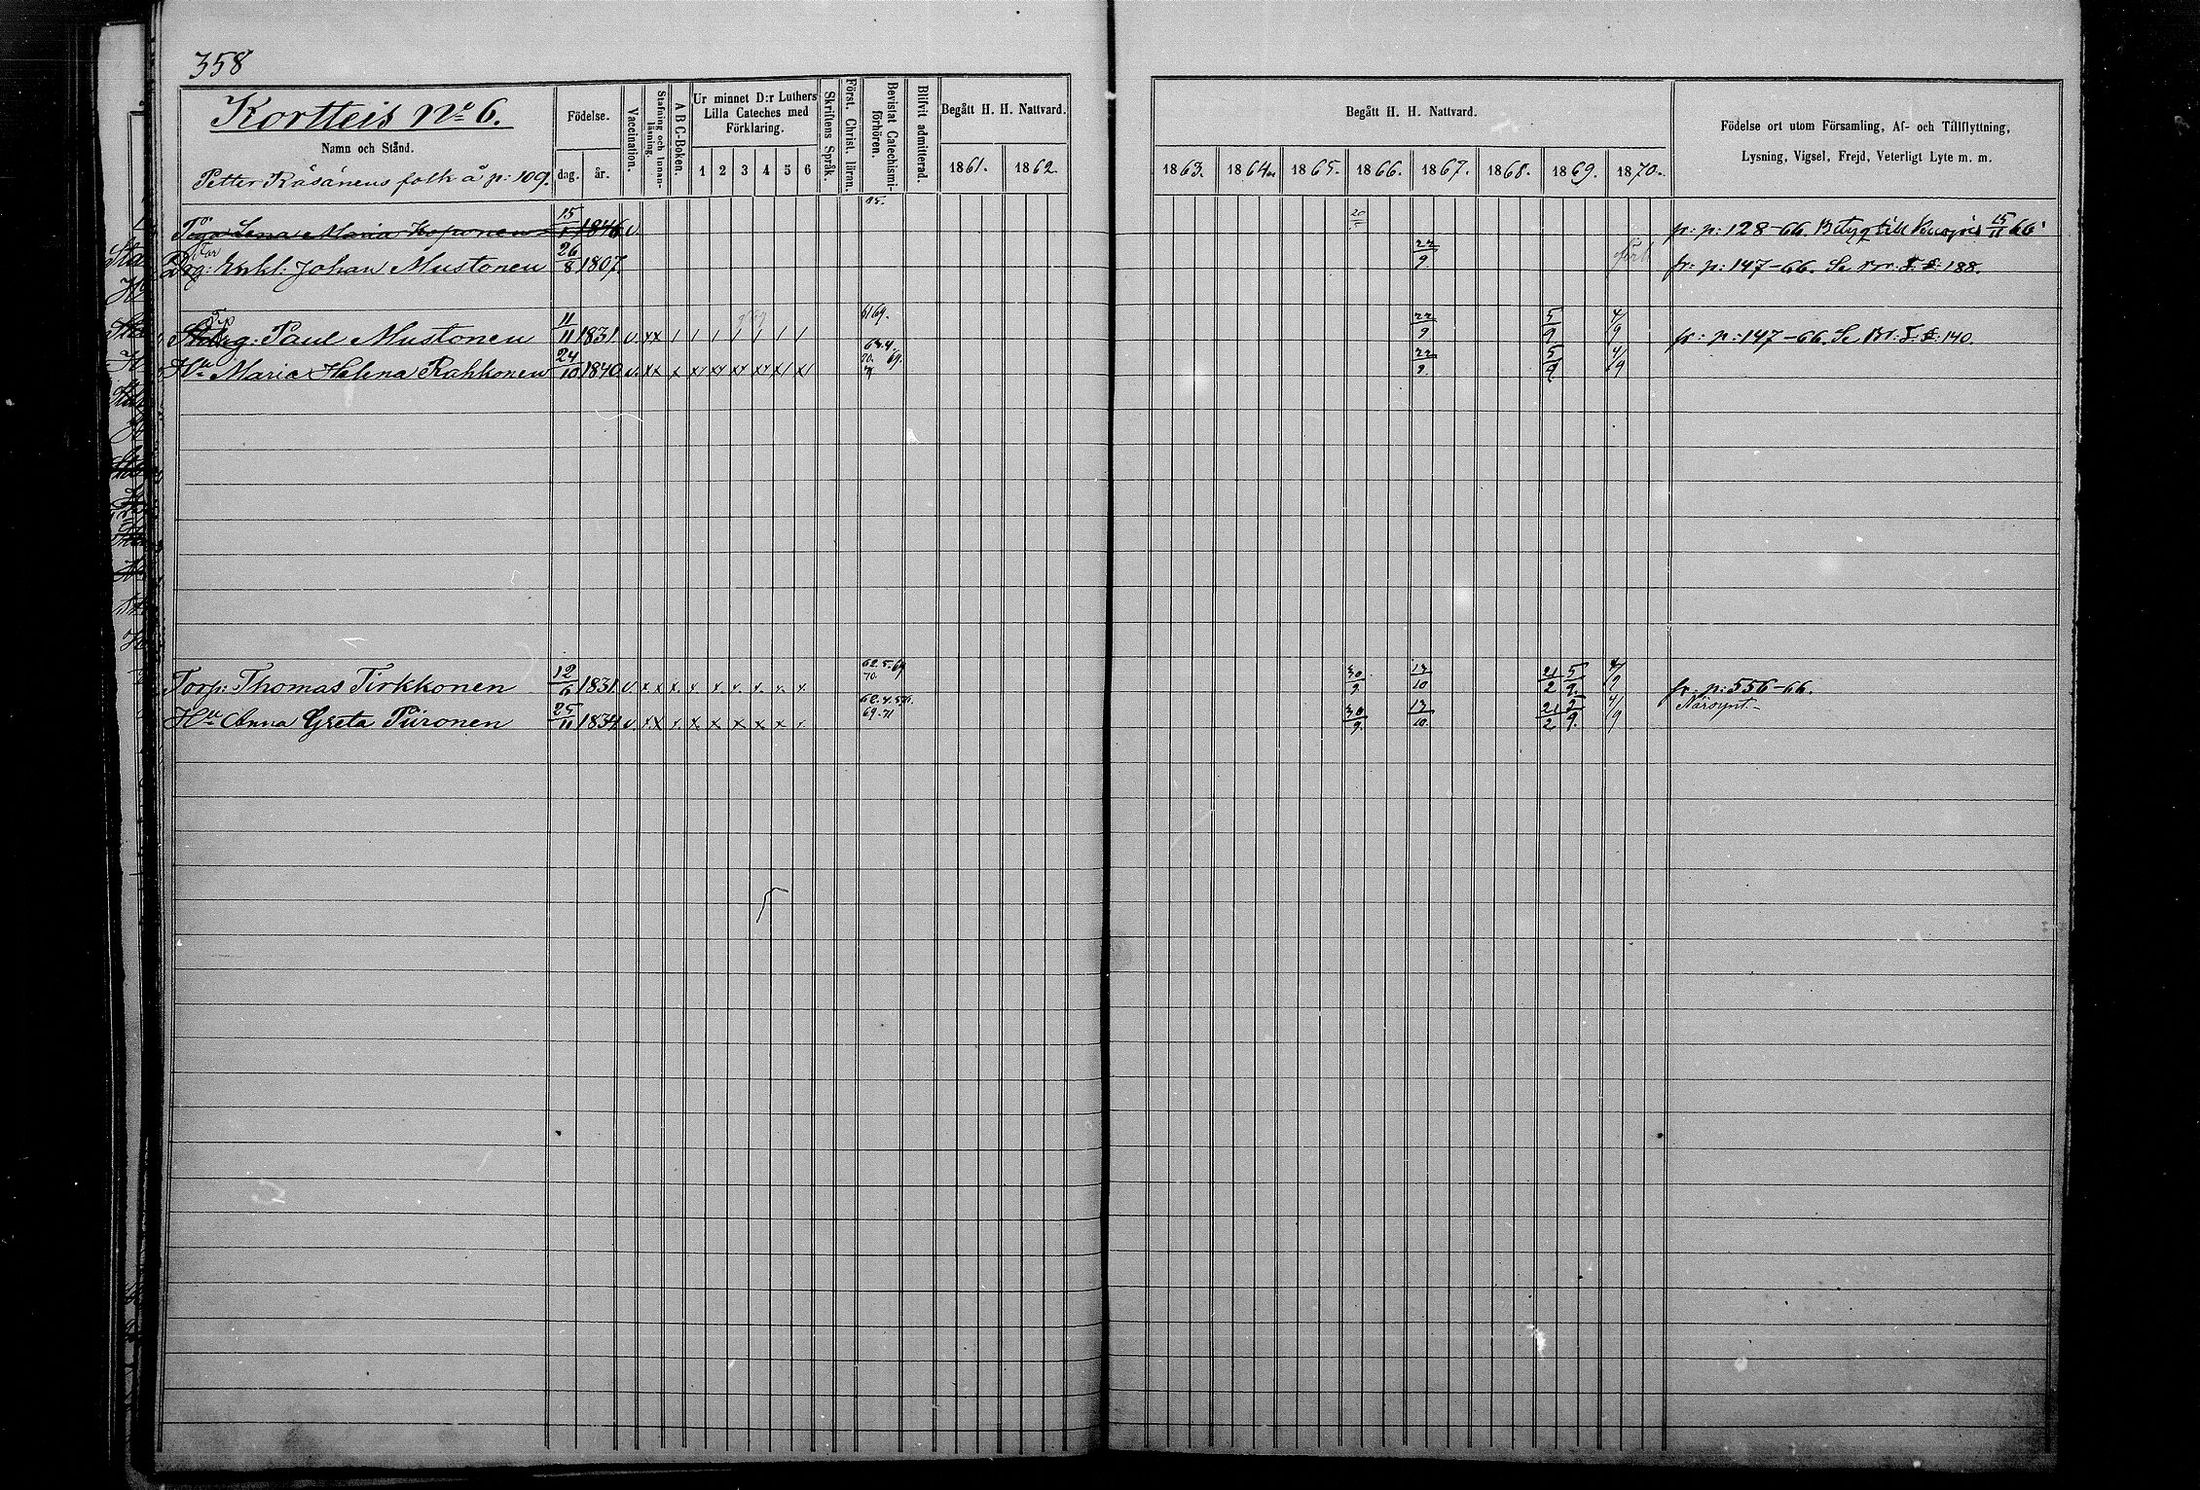 358
Kortteis No 6.
Namn och Stånd.
Petter Räsänens folk å p: 109.
Födelse.
dag. år.
Vaccination.
Stafning och Innanläsning.
A B C-Boken.
Ur minnet D:r Luthers Lilla Cateches med Förklaring.
1 2 3 4 5 6
Skriftens Språk.
Först. Christ. läran.
Bevistat Catechismiförhören.
Blifvit admitterad.
Begått H. H. Nattvard.
1861. 1862.
Begått H. H. Nattvard.
1863. 1864. 1865. 1866. 1867. 1868. 1869. 1870.
Födelse ort utom Församling, Af- och Tillflyttning,
Lysning, Vigsel, Frejd, Veterligt Lyte m. m.
Lena Maria Koponen 15/1 1846 v fr: p: 128-66. Betyg till Kuopio 15/11 66
Enkl: Johan Mustonen 26/8 1807. 22/9. fr: p: 147-66. Se 188.
Paul Mustonen 11/11 1831 v. xx / / / / / / / 6169. 22/9 5/9 4/9 fr: p: 147-66. Se 140.
Hu Maria Helena Rahkonen 24/10 1840 v. xx x 22/9. 5/9 4/9
Torp: Thomas Tirkkonen 12/6 1831. v. x x x. x. x. x. x. x. x. 62. 5. 69 70. 30/9. 13/10 21/2 5/9. 4/9 fr. p: 556-66.
Hu Anna Greta Piironen 25/11 1834 v. xx x. x x x x x x 69. 71 30/9. 13/10. 21/2 5/9. 4/9